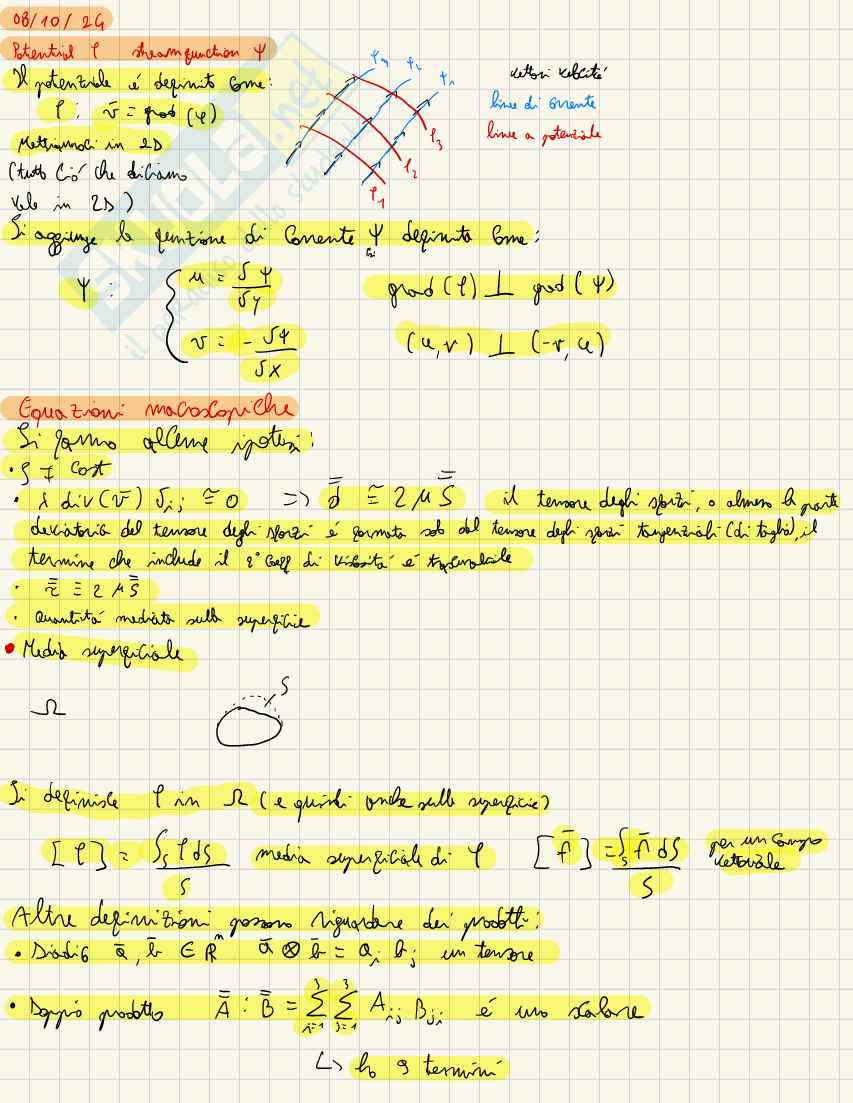 08/10/24
Potential φ streamfunction Ψ
Il potenziale é definito come:
φ : v̄ = grad (φ)
Mettiamoci in 2D
(tutto ciò che diciamo
vale in 2D)
Ψ₃ Ψ₂ Ψ₁
φ₃
φ₂
φ₁
vettori velocitá
linee di corrente
linee a potenziale
Si aggiunge la funzione di corrente Ψ definita come:
Ψ : { u = δΨ/δy
v = - δΨ/δx
grad (φ) ⊥ grad (Ψ)
(u, v) ⊥ (-v, u)
Equazioni macroscopiche
Si fanno alcune ipotesi:
• ρ ≠ cost
• λ div(v̄) δij ≅ 0 => d̿ ≅ 2 μ S̿ il tensore degli sforzi, o almeno la parte
deviatoria del tensore degli sforzi é formata solo dal tensore degli sforzi tangenziali (di taglio), il
termine che include il 2° coeff di viscositá é trascurabile
• τ̿ ≡ 2 μ S̿
• Quantitá mediata sulla superficie
• Media superficiale
Ω
S
Si definisce φ in Ω (e quindi anche sulla superficie)
[φ] = ∫s φ dS / S media superficiale di φ [n̄] = ∫s n̄ dS / S per un campo
vettoriale
Altre definizioni possono riguardare dei prodotti:
• Diadico ā, b̄ ∈ ℝⁿ ā ⊗ b̄ = ai bj un tensore
• Doppio prodotto A̿ : B̿ = Σ³i=1 Σ³j=1 Aij Bji é uno scalare
↳ ho 9 termini
skuola.net